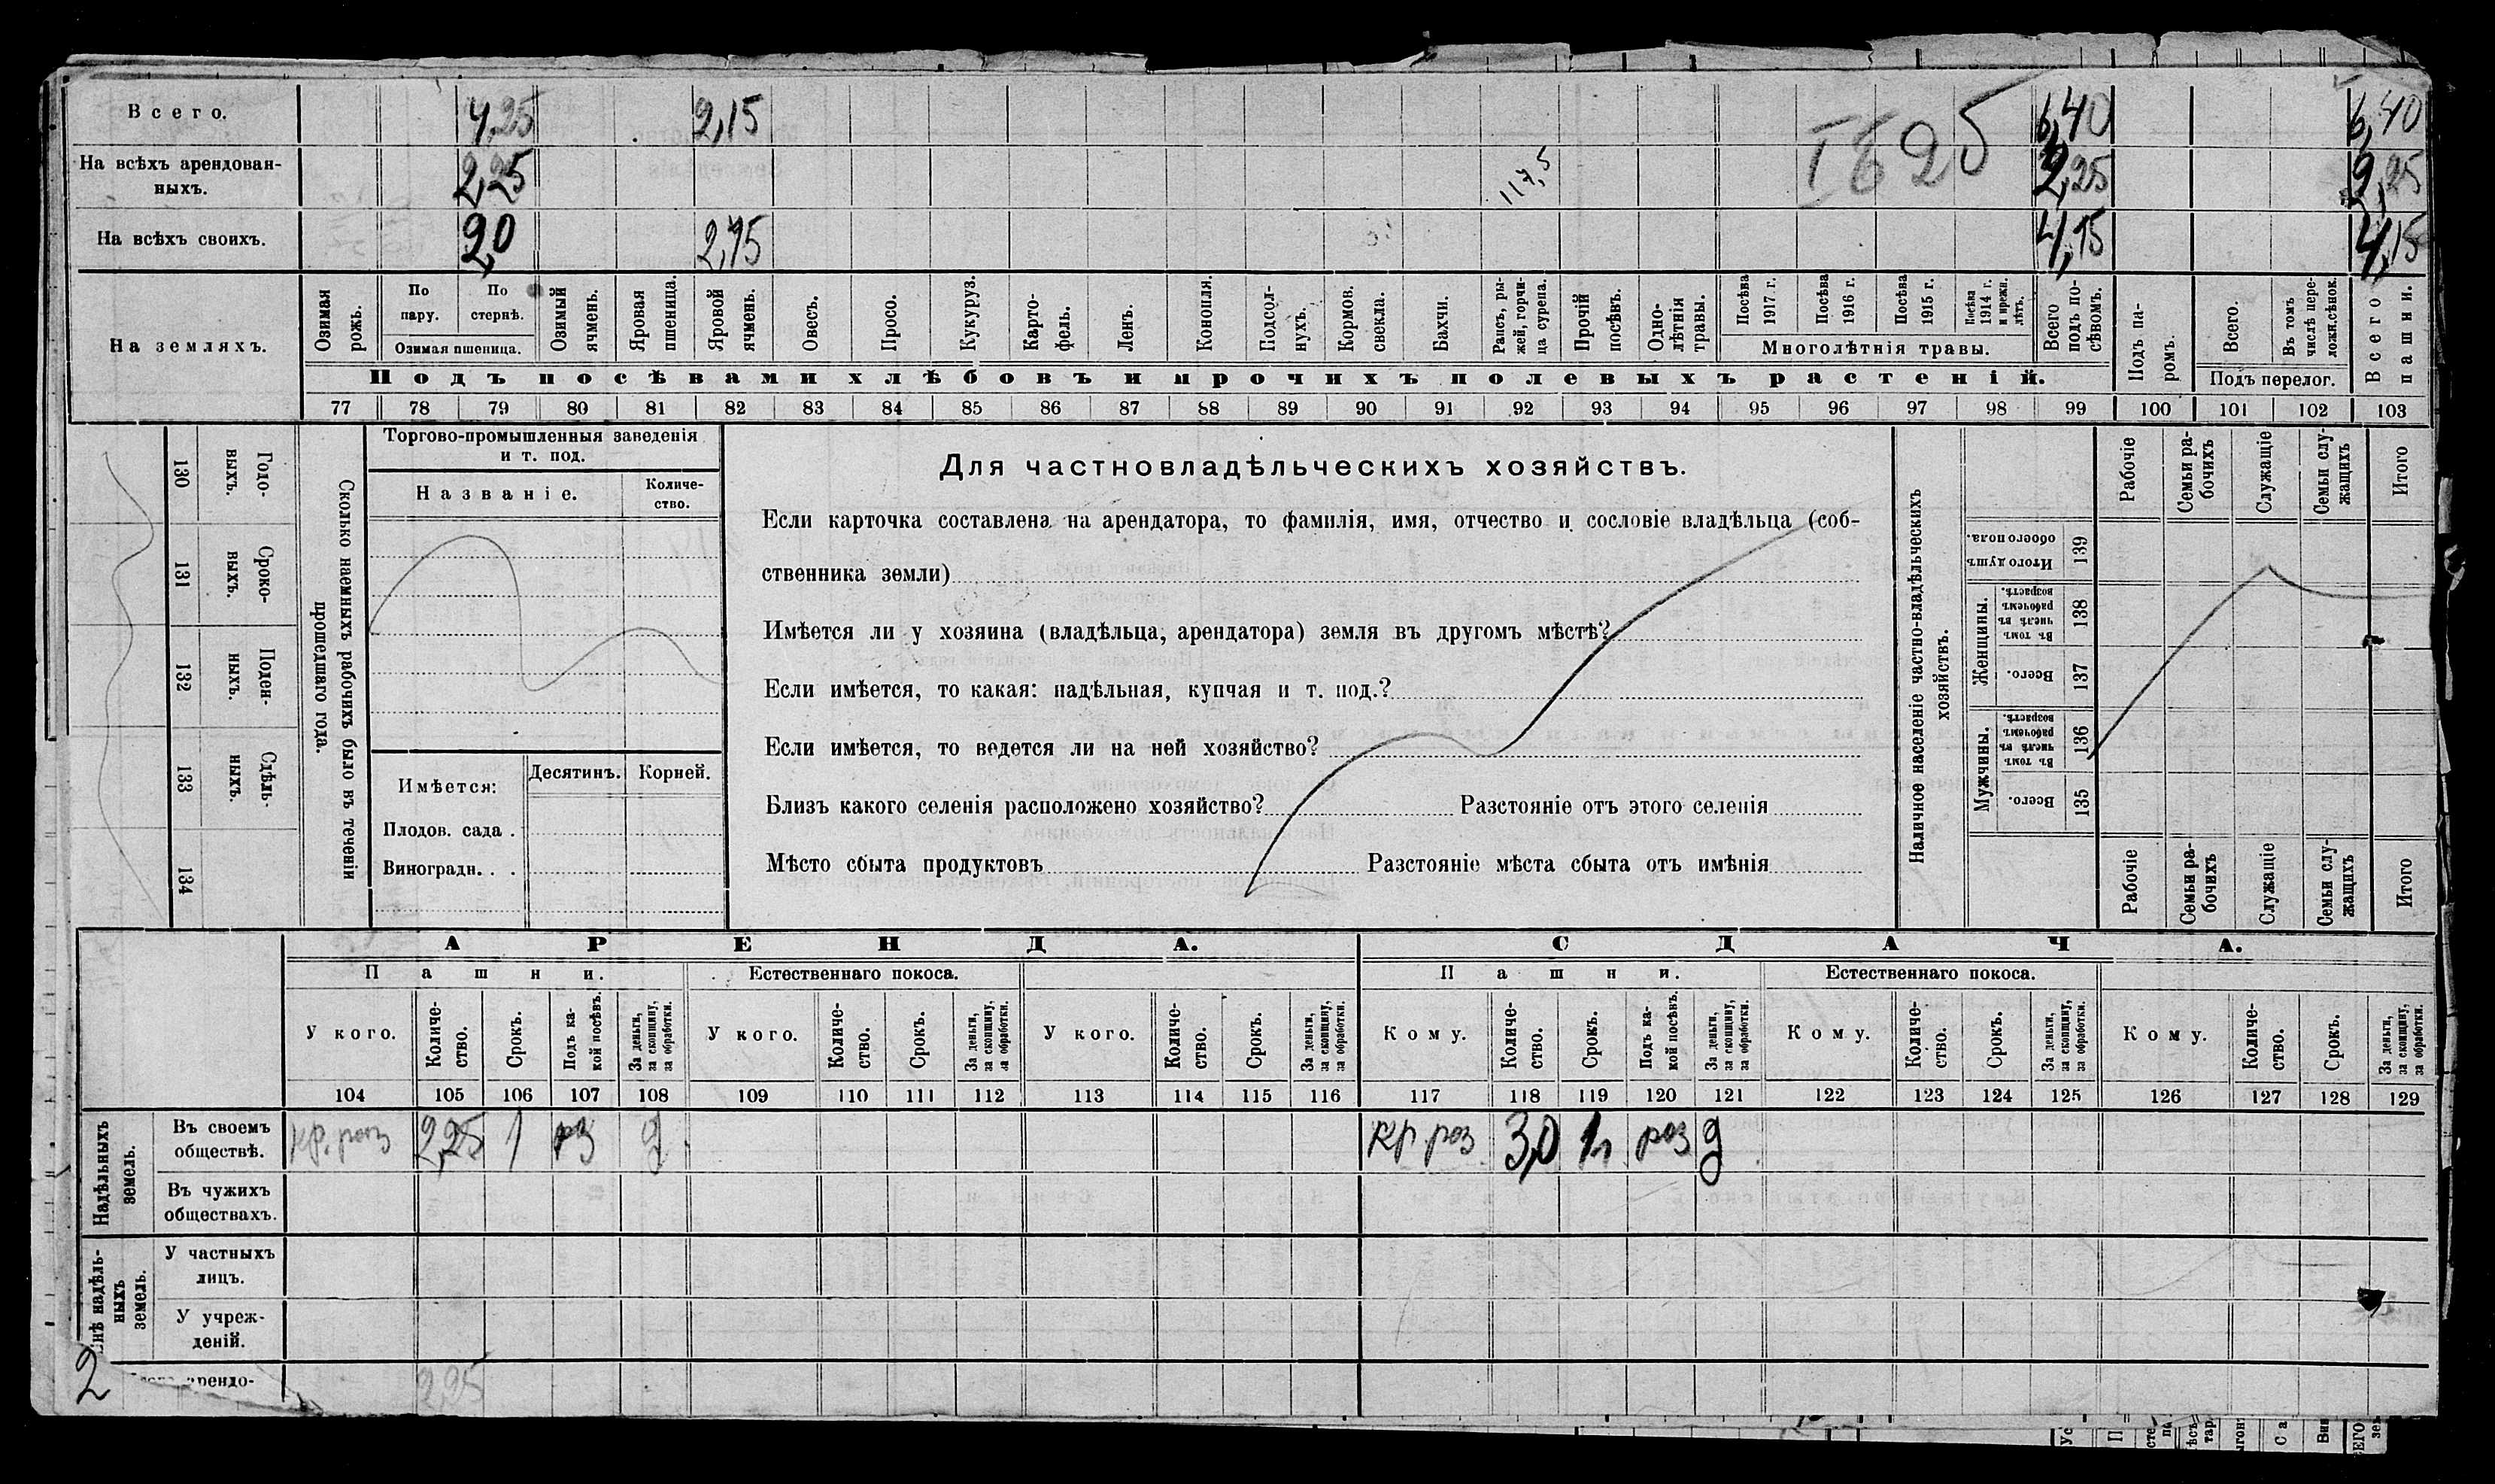 Всего. 4,25 2,15 6,40 6,40
На всѣхъ арендован-
ныхъ. 2,25 117,5 2,25 2,25
На всѣхъ своихъ. 2,0 2,15 4,15 4,15
На земляхъ.
Озимая рожь.
По пару.
По стернѣ.
Озимая пшеница.
Озимый ячмень.
Яровая пшеница.
Яровой ячмень.
Овесъ.
Просо.
Кукуруз.
Карто-
фель.
Ленъ.
Конопля.
Подсол-
нухъ.
Кормов. свекла.
Бахчи.
Рапсъ, ры-
жей, горчи-
ца сурепа.
Прочій посѣвъ.
Одно-
лѣтнія травы.
Посѣва 1917 г.
Посѣва 1916 г.
Посѣва 1915 г.
Посѣва 1914 г. и прежн. лѣтъ.
Многолѣтнія травы.
Всего подъ по-
сѣвомъ.
Подъ посѣвами хлѣбовъ и прочихъ полевыхъ растеній.
Подъ па-
ромъ.
Всего.
Въ томъ числѣ пере-
ложн.сѣнок.
Подъ перелог.
Всего пашни.
77 78 79 80 81 82 83 84 85 86 87 88 89 90 91 92 93 94 95 96 97 98 99 100 101 102 103
Годо-
выхъ.
130
Сроко-
выхъ.
131
Поден-
ныхъ.
132
Сдѣль-
ныхъ.
133
134
Сколько наемныхъ рабочихъ было въ теченіи
прошедшаго года.
Торгово-промышленныя заведенія
и т. под.
Названіе.
Количе-
ство.
Имѣется: Десятинъ. Корней.
Плодов. сада .
Виноградн. . .
Для частновладѣльческихъ хозяйствъ.
Если карточка составлена на арендатора, то фамилія, имя, отчество и сословіе владѣльца (соб-
ственника земли)
Имѣется ли у хозяина (владѣльца, арендатора) земля въ другомъ мѣстѣ?
Если имѣется, то какая: надѣльная, купчая и т. под.?
Если имѣется, то ведется ли на ней хозяйство?
Близъ какого селенія расположено хозяйство? Разстояніе отъ этого селенія
Мѣсто сбыта продуктовъ Разстояніе мѣста сбыта отъ имѣнія
Наличное населеніе частно-владѣльческихъ
хозяйствъ.
Рабочіе
Семьи ра-
бочихъ
Служащіе
Семьи слу-
жащихъ
Итого
Итого душъ обоего пола.
139
Женщины.
Въ томъ числѣ въ рабочемъ возрастѣ.
138
Всего.
137
Мужчины.
Въ томъ числѣ въ рабочемъ возрастѣ.
136
Всего.
135
Рабочіе
Семьи ра-
бочихъ
Служащіе
Семьи слу-
жащихъ
Итого
АРЕНДА. СДАЧА.
Пашни. Естественнаго покоса. Пашни. Естественнаго покоса.
У кого.
Количе-
ство.
Срокъ.
Подъ ка-
кой посѣвъ.
За деньги,
за скопщину,
за обработки.
У кого.
Количе-
ство.
Срокъ.
За деньги,
за скопщину,
за обработки.
У кого.
Количе-
ство.
Срокъ.
За деньги,
за скопщину,
за обработки.
Кому.
Количе-
ство.
Срокъ.
Подъ ка-
кой посѣвъ.
За деньги,
за скопщину,
за обработки.
Кому.
Количе-
ство.
Срокъ.
За деньги,
за скопщину,
за обработки.
Кому.
Количе-
ство.
Срокъ.
За деньги,
за скопщину,
за обработки.
104 105 106 107 108 109 110 111 112 113 114 115 116 117 118 119 120 121 122 123 124 125 126 127 128 129
Надѣльныхъ
земель.
Въ своемъ
обществѣ. кр. роз 2,25 1 роз д кр роз 3,0 роз д
Въ чужихъ
обществахъ.
надѣль-
ныхъ
земель.
У частныхъ
лицъ.
У учреж-
деній.
арендо- 2,25
2